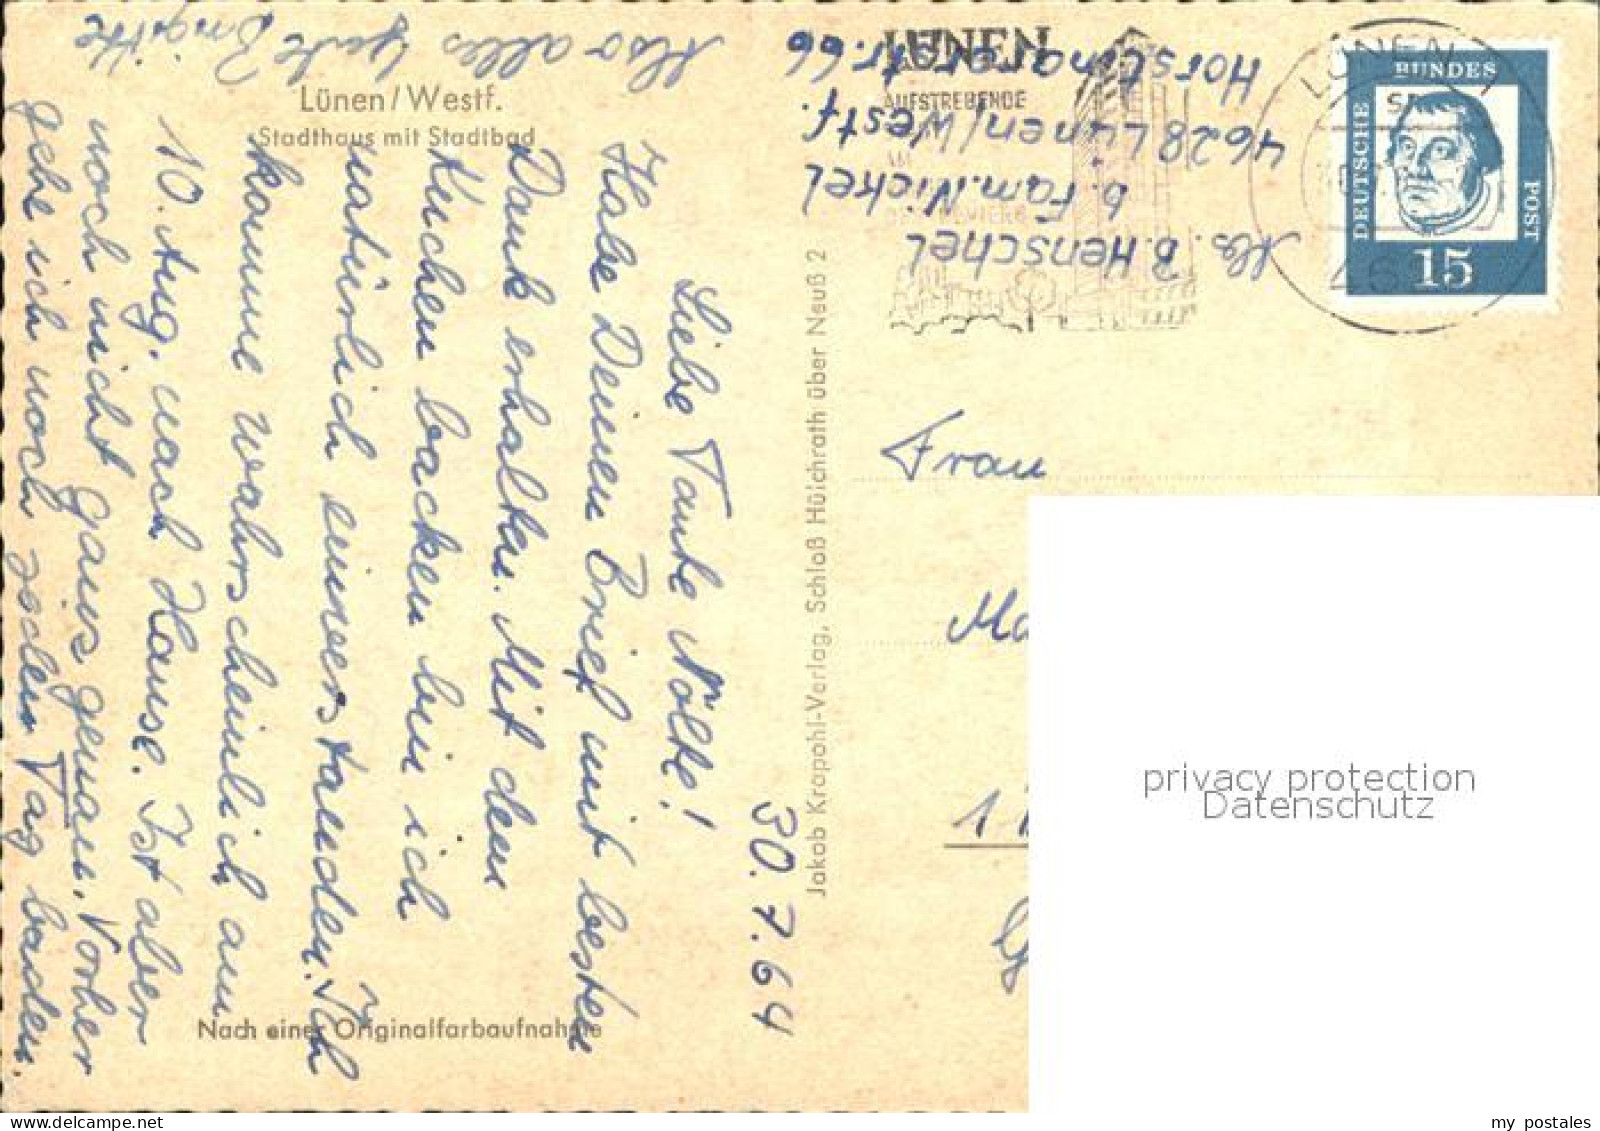 Lünen/Westf.
Stadthaus mit Stadtbad
30.7.64
Liebe Tante Nölte!
Habe Deinen Brief mit besten
Dank erhalten. Mit dem
Kuchen backen bin ich
natürlich einverstanden. Ich
komme wahrscheinlich am
10. Aug. nach Hause. Ist aber
noch nicht ganz genau. Vorher
gehe ich noch jeden Tag baden.
Also alles Gute Brigitte
Nach einer Originalfarbaufnahme
Jakob Krapohl-Verlag, Schloß Hülchrath über Neuß 2
Abs. B. Henschel
b. Fam. Nickel
4628 Lünen/Westf.
Horstmarerstr. 66
LÜNEN
AUFSTREBENDE
AM
LÜNEN 1
DEUTSCHE
BUNDES
POST
15
Frau
privacy protection
Datenschutz
my postales